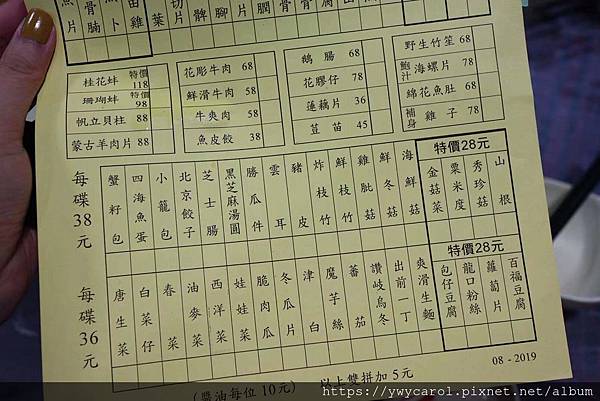 桂花蚌 特價118
珊瑚蚌 特價98
帆立貝柱 88
蒙古羊肉片 88
花彫牛肉 68
鮮滑牛肉 58
牛爽肉 58
魚皮餃 38
鵝腸 68
花膠仔 78
蓮藕片 36
荳苗 45
野生竹笙 68
鮑汁海螺片 78
綿花魚肚 68
補身雞子 78
每碟38元
蟹籽包
四海魚蛋
小籠包
北京餃子
芝士腸
黑芝麻湯圓
勝瓜件
雲耳
豬皮
炸枝竹
鮮枝竹
雞肶菇
鮮冬菇
海鮮菇
特價28元
金菇菜
粟米度
秀珍菇
山根
每碟36元
唐生菜
白菜仔
春菜
油麥菜
西洋菜
娃娃菜
脆肉瓜
冬瓜片
津白
魔芋絲
蕃茄
讚岐烏冬
出前一丁
爽滑生麵
特價28元
包仔豆腐
龍口粉絲
蘿蔔片
百福豆腐
08 - 2019
(醬油每位10元) 以上雙拼加5元
https://ywycarol.pixnet.net/album